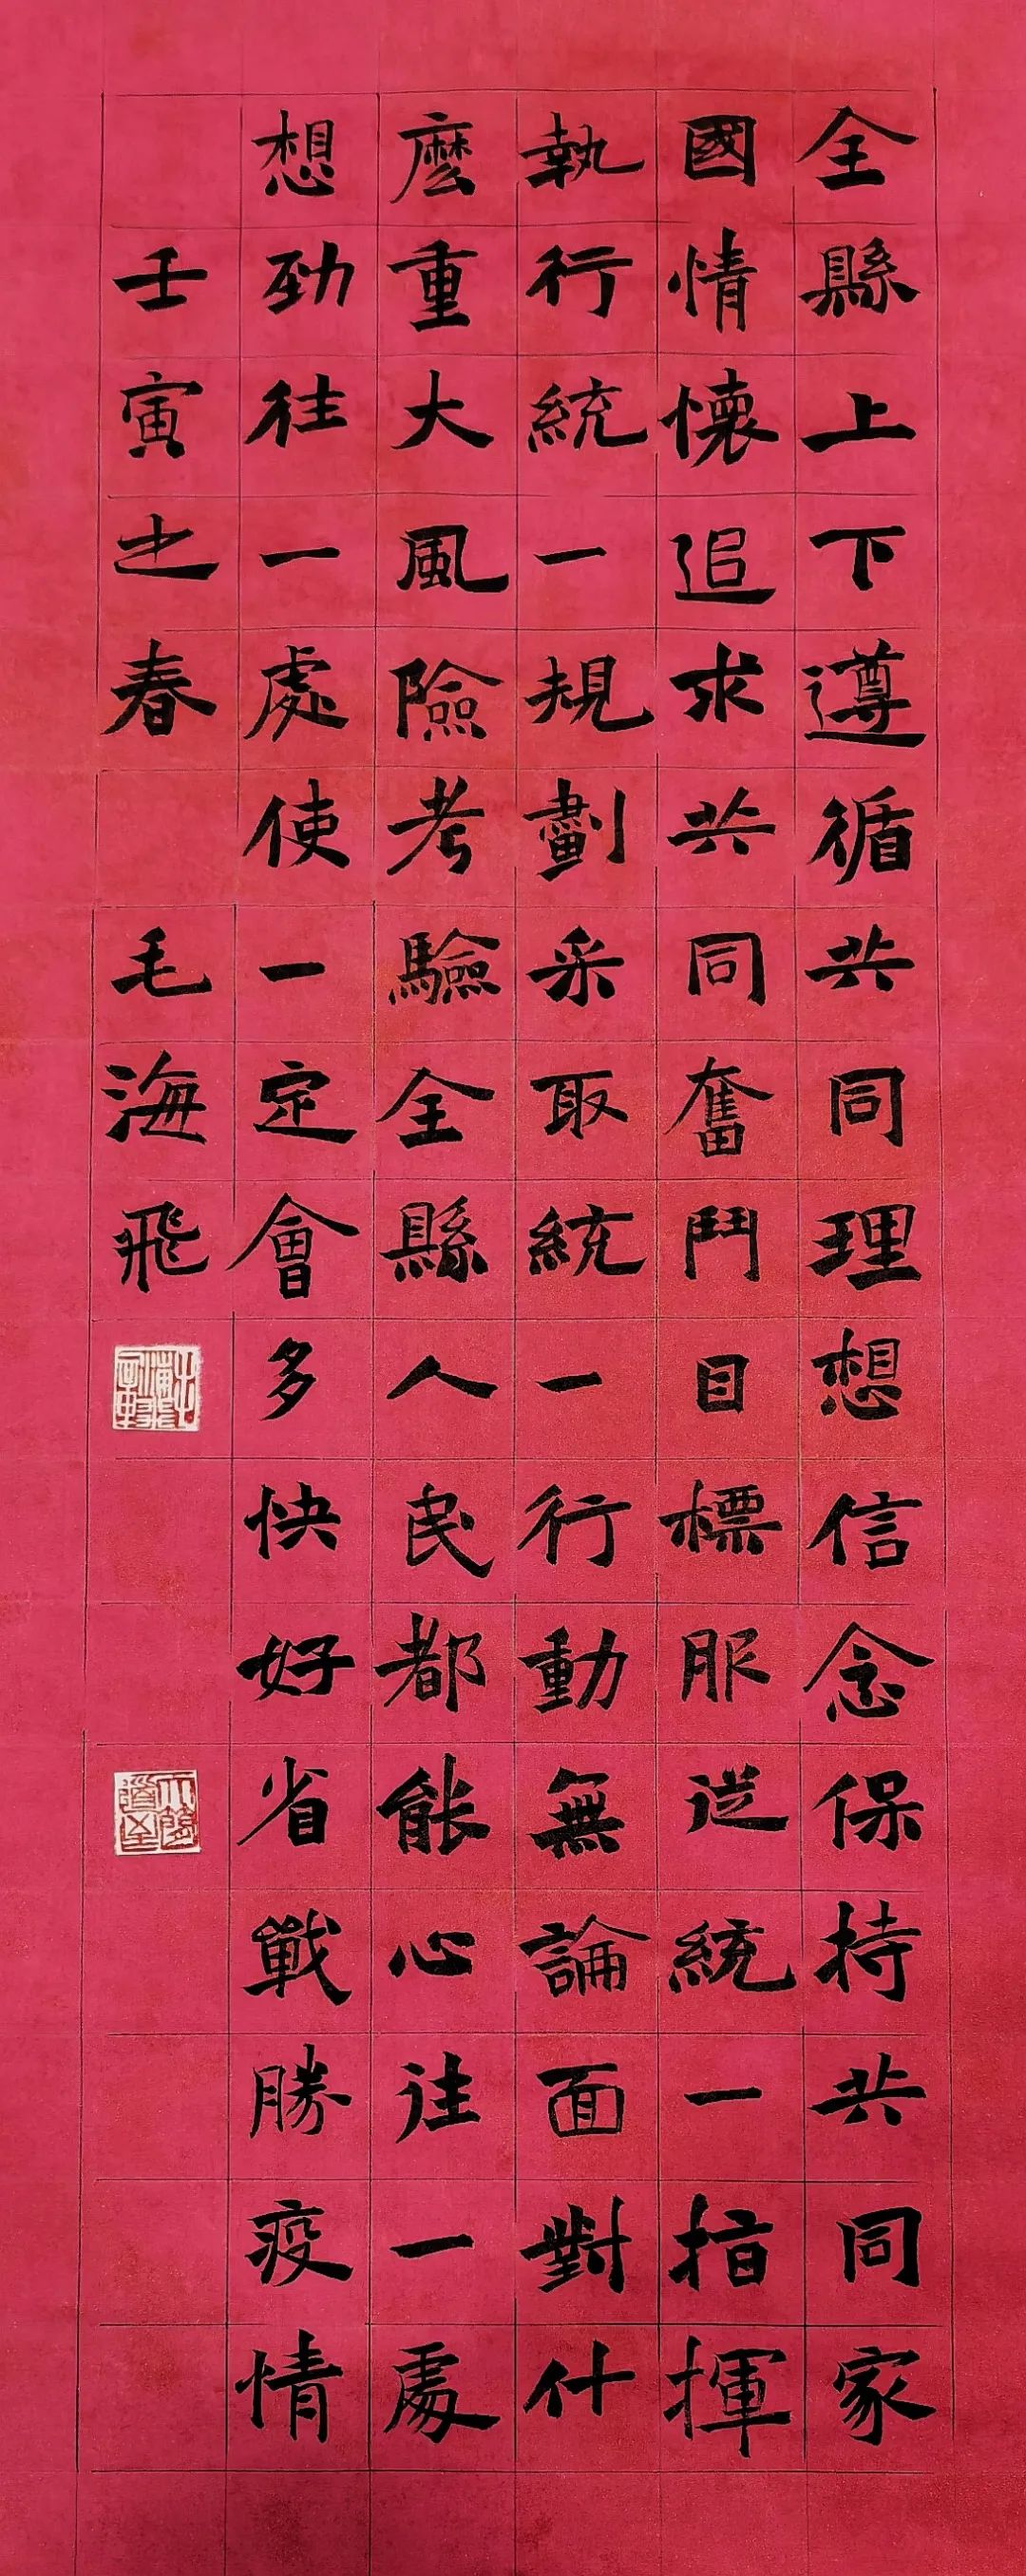 全縣上下遵循共同理想信念保持共同家
國情懷追求共同奮鬥目標服從統一指揮
執行統一規劃采取統一行動無論面對什
麼重大風險考驗全縣人民都能心往一處
想劲往一處使一定會多快好省戰勝疫情
壬寅之春 毛海飛